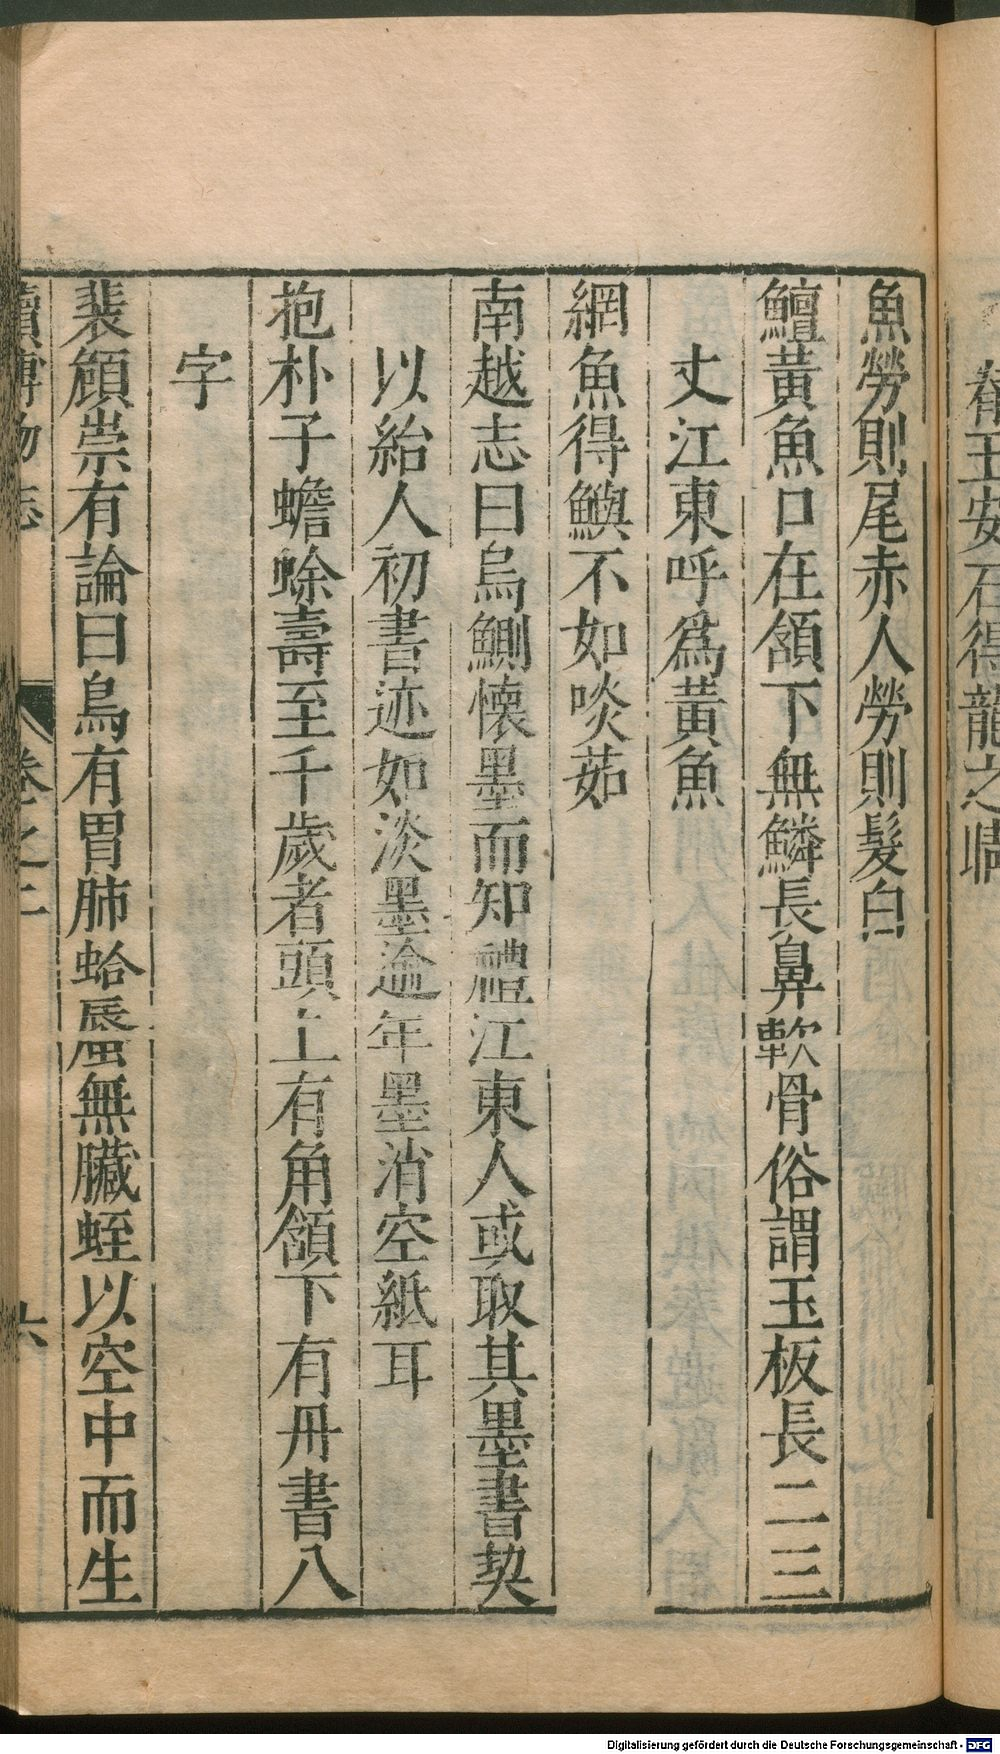 魚勞則尾赤人勞則髮白
鱣黃魚口在頷下無鱗長鼻軟骨俗謂玉板長二三
丈江東呼爲黃魚
網魚得鱮不如啖茹
南越志曰烏鰂懷墨而知禮江東人或取其墨書契
以紿人初書迹如淡墨逾年墨消空紙耳
抱朴子蟾蜍壽至千歲者頭上有角頷下有丹書八
字
裴頠崇有論曰鳥有胃肺蛤蜃無臟蛭以空中而生
續博物志 卷之二 六
王安石得龍之睛
Digitalisierung gefördert durch die Deutsche Forschungsgemeinschaft - DFG